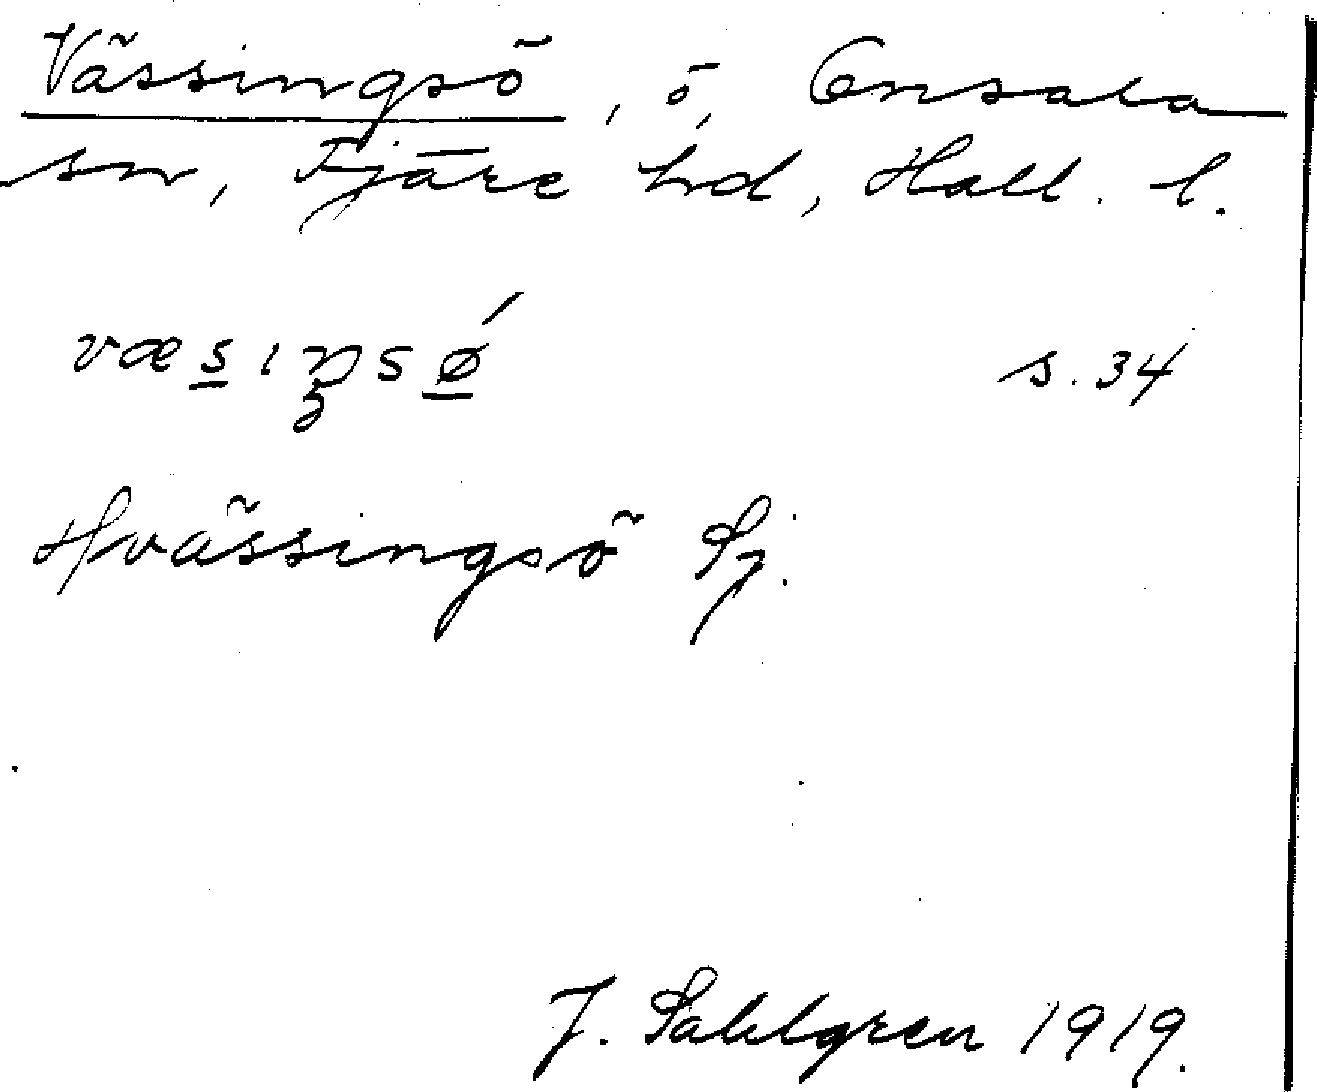 Vässingsö, ö, Onsala
sn, Fjäre hd, Hall. l.
væsıŋsǿ s. 34
Hvässingsö Sj.
J. Sahlgren 1919.